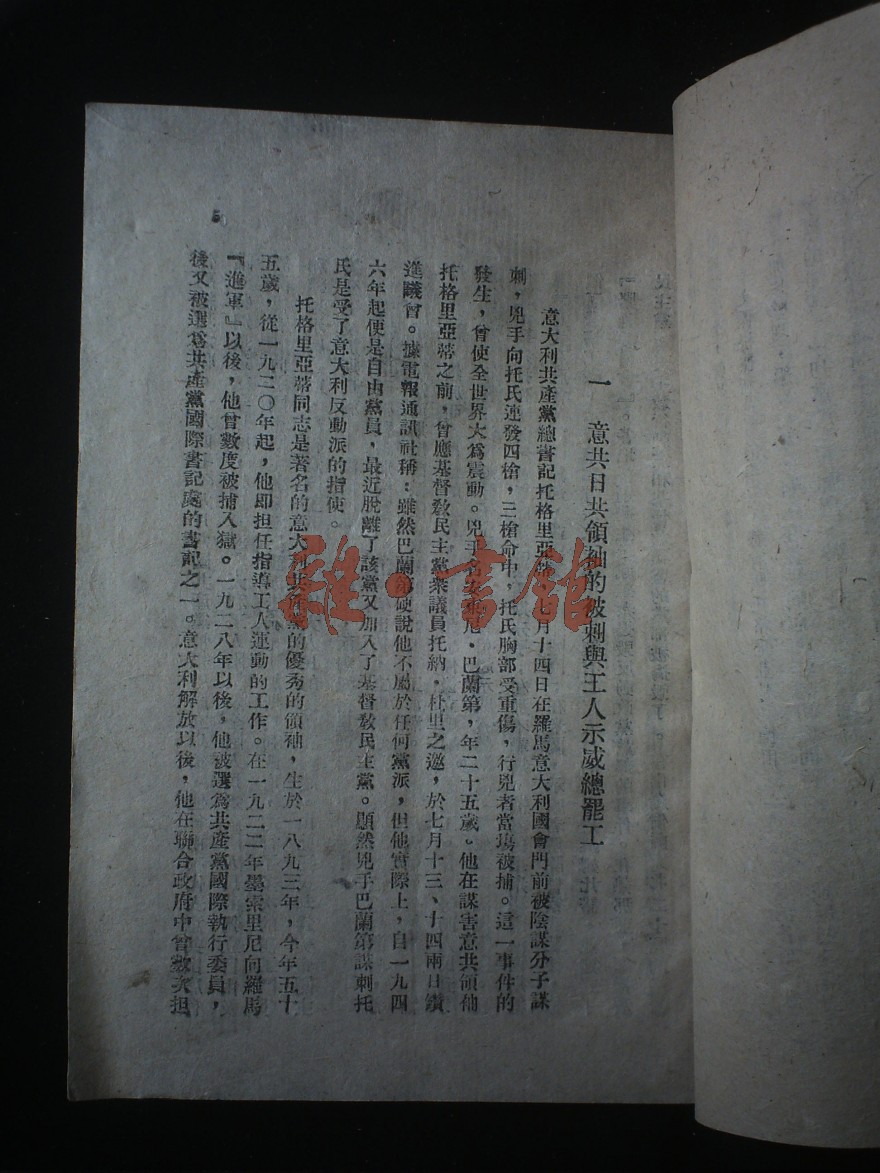 一　意共日共領袖的被刺與工人示威總罷工
意大利共產黨總書記托格里亞蒂 月十四日在羅馬意大利國會門前被陰謀分子謀
刺，兇手向托氏連發四槍，三槍命中，托氏胸部受重傷，行兇者當場被捕。這一事件的
發生，曾使全世界大爲震動。兇手名安 尼·巴蘭第，年二十五歲。他在謀害意共領袖
托格里亞蒂之前，曾應基督敎民主黨衆議員托納，杜里之邀，於七月十三、十四兩日續
進議會。據電報通訊社稱：雖然巴蘭第硬說他不屬於任何黨派，但他實際上，自一九四
六年起便是自由黨員，最近脫離了該黨又加入了基督敎民主黨。顯然兇手巴蘭第謀刺托
氏是受了意大利反動派的指使。
托格里亞蒂同志是著名的意大利共產黨的優秀的領袖，生於一八九三年，今年五十
五歲，從一九二〇年起，他即担任指導工人運動的工作。在一九二二年墨索里尼向羅馬
『進軍』以後，他曾數度被捕入獄。一九二八年以後，他被選爲共產黨國際執行委員，
後又被選爲共產黨國際書記處的書記之一。意大利解放以後，他在聯合政府中曾數次担
5
雜·書館